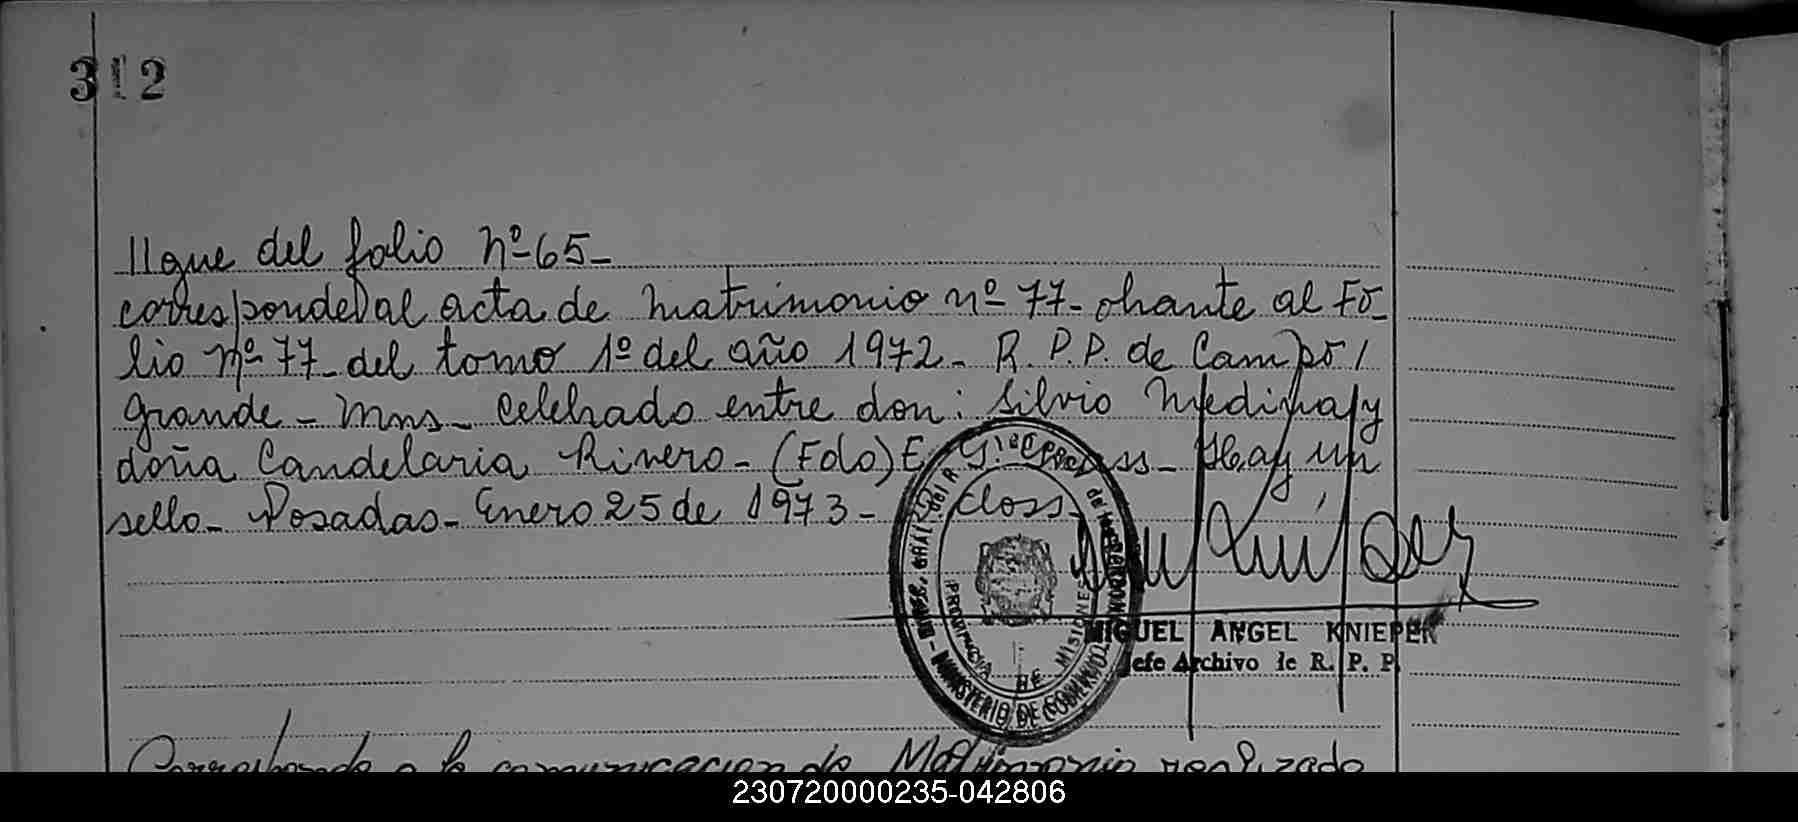 312
//gue del folio Nº 65-
corresponde al acta de matrimonio nº 77- obrante al Fo-
lio Nº 77- del tomo 1º del año 1972- R. P. P. de Campo /
grande - Mns- Celebrado entre don: Silvio Medina y
doña Candelaria Rivero - (Fdo) E. Closs- Hay un
sello- Posadas- Enero 25 de 1973- closs-
PROVINCIA DE MISIONES
MINISTERIO DE GOBIERNO
MIGUEL ANGEL KNIEPER
Jefe Archivo de R. P. P.
Corresponde a la comunicacion de Matrimonio realizado
230720000235-042806